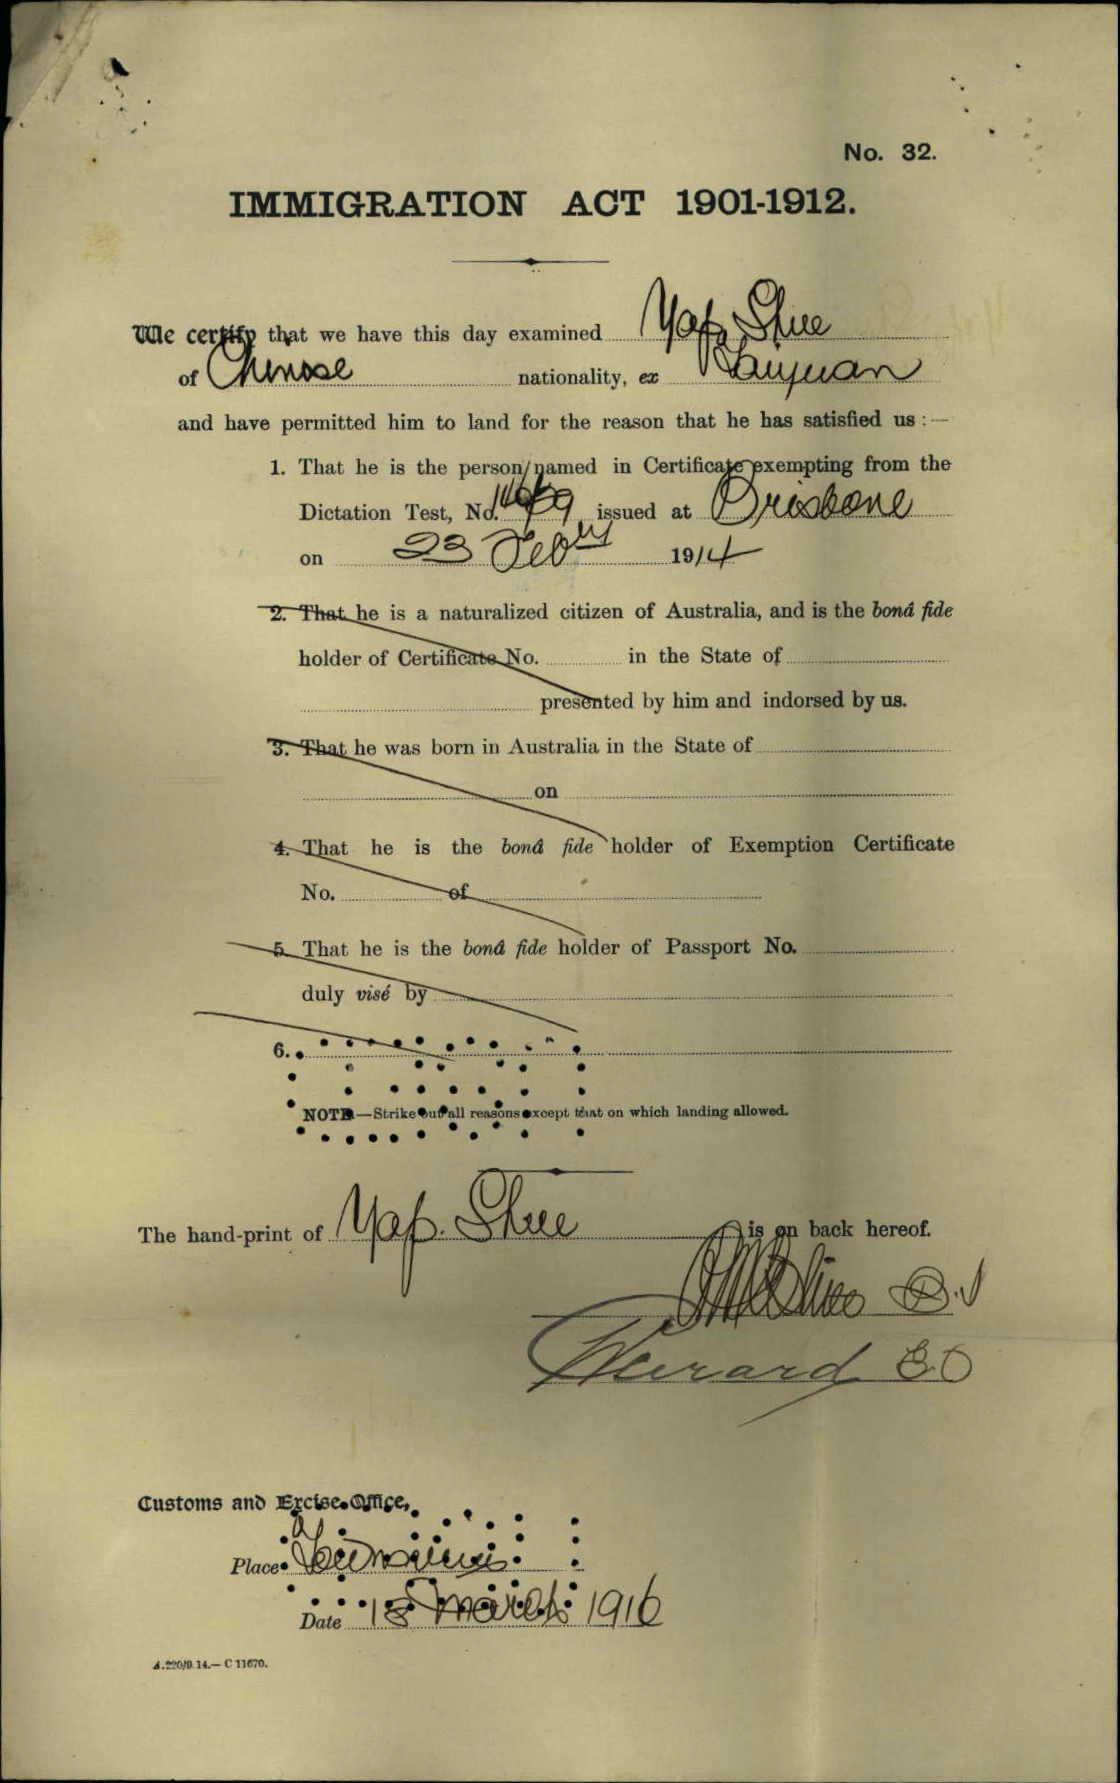 No. 32.
IMMIGRATION ACT 1901-1912.
We certify that we have this day examined Yap Shue
of Chinese nationality, ex Taiyuan
and have permitted him to land for the reason that he has satisfied us :—
1. That he is the person named in Certificate exempting from the
Dictation Test, No. issued at Brisbane
on 23 Febry 1914
2. That he is a naturalized citizen of Australia, and is the bonâ fide
holder of Certificate No. in the State of
presented by him and indorsed by us.
3. That he was born in Australia in the State of
on
4. That he is the bonâ fide holder of Exemption Certificate
No. of
5. That he is the bonâ fide holder of Passport No.
duly visé by
6.
NOTE—Strike out all reasons except that on which landing allowed.
The hand-print of Yap. Shue is on back hereof.
Customs and Excise Office,
Place
Date 18 March 1916
A.220/9.14.—C 11670.